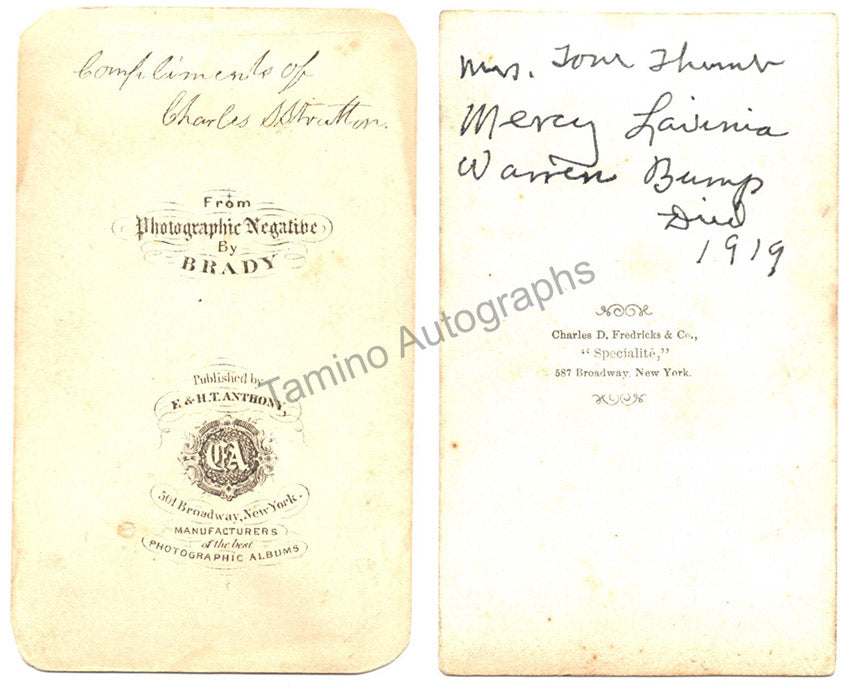 Compliments of
Charles S. Stratton.
From
Photographic Negative
By
BRADY
Published by
E & H.T. ANTHONY,
501 Broadway, New York.
MANUFACTURERS
of the best
PHOTOGRAPHIC ALBUMS
Mrs. Tom Thumb
Mercy Lavinia
Warren Bump
Died
1919
Charles D. Fredricks & Co.,
"Specialité,"
587 Broadway. New York.
Tamino Autographs